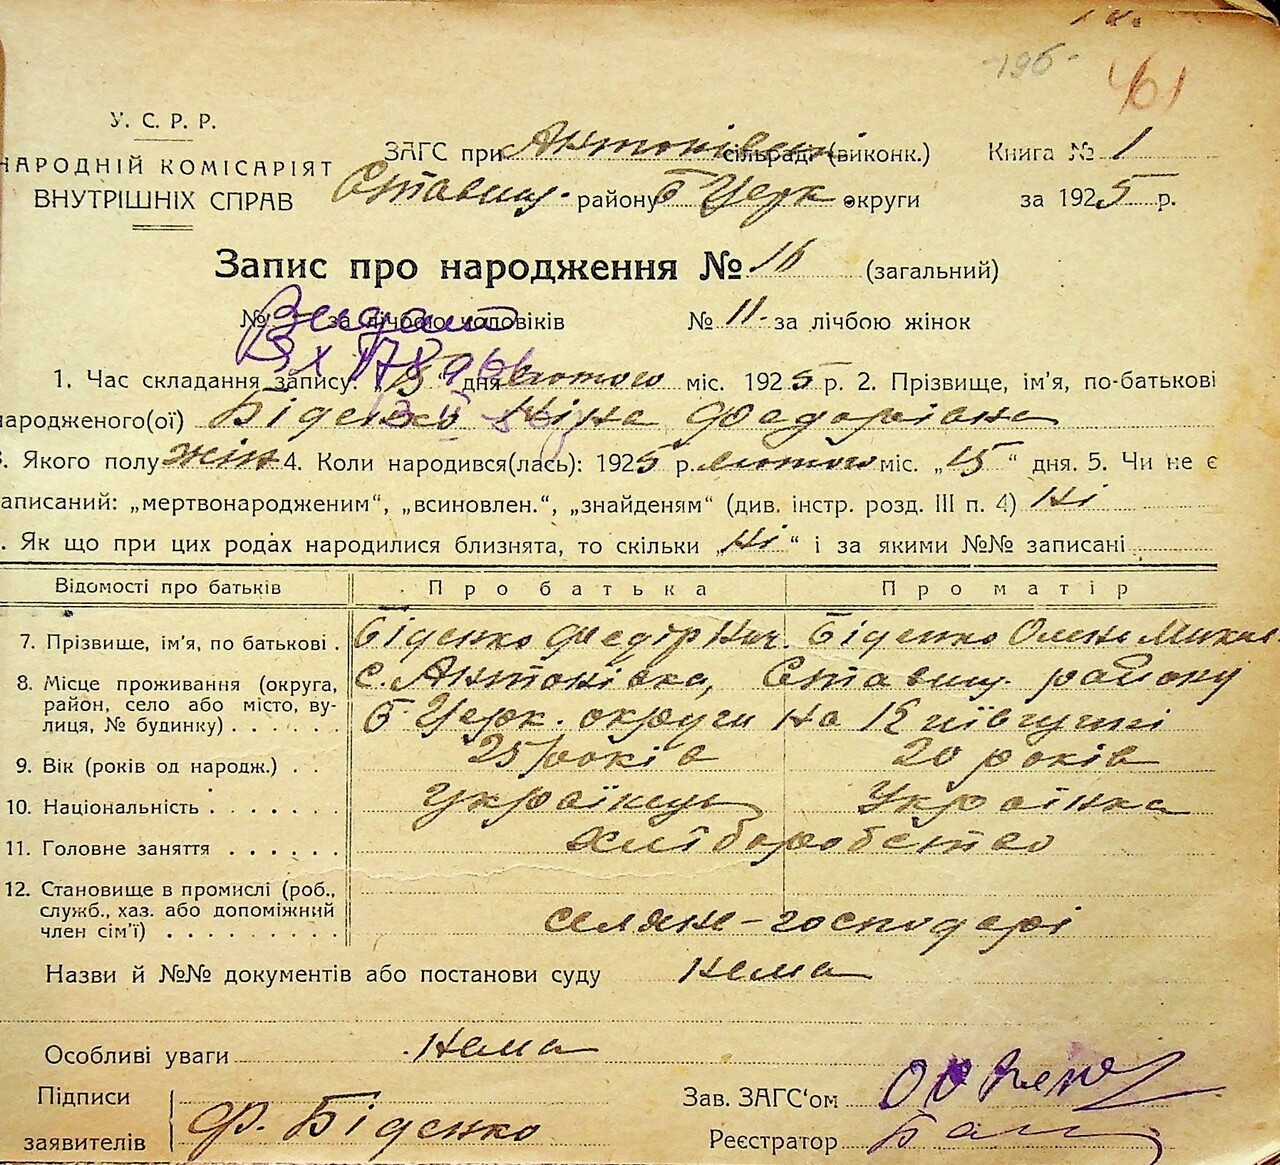 -196- 461
У. С. Р. Р.
НАРОДНІЙ КОМІСАРІЯТ
ВНУТРІШНІХ СПРАВ
ЗАГС при Антонівськ сільраді (виконк.) Книга № 1
Ставищ. району Б Церк округи за 1925 р.
Запис про народження № 16 (загальний)
№ – за лічбою чоловіків № 11 за лічбою жінок
Видано
Вх 178
1. Час складання запису: „15“ дня лютого міс. 1925 р. 2. Прізвище, ім'я, по-батькові
народженого(ої) Біденко Ніна Федорівна
3. Якого полу жін 4. Коли народився(лась): 1925 р. лютого міс. „15“ дня. 5. Чи не є
записаний: „мертвонародженим“, „всиновлен.“, „знайденям“ (див. інстр. розд. III п. 4) Ні
. Як що при цих родах народилися близнята, то скільки „Ні“ і за якими №№ записані
Відомості про батьків Про батька Про матір
7. Прізвище, ім'я, по батькові . Біденко Федір Ник. Біденко Олена Микол
8. Місце проживання (округа, район, село або місто, ву-лиця, № будинку) . . . . . . с. Антонівка, Ставищ. району
Б Церк. округи на Київщині
9. Вік (років од народж.) . . 25 років 20 років
10. Національність . . . . . . Українець Українка
11. Головне заняття . . . . . . хліборобство
12. Становище в промислі (роб., служб., хаз. або допоміжний член сім'ї) . . . . . . . . . селяне-господарі
Назви й №№ документів або постанови суду Нема
Особливі уваги Нема
Підписи
заявителів Ф. Біденко
Зав. ЗАГС'ом
Реєстратор